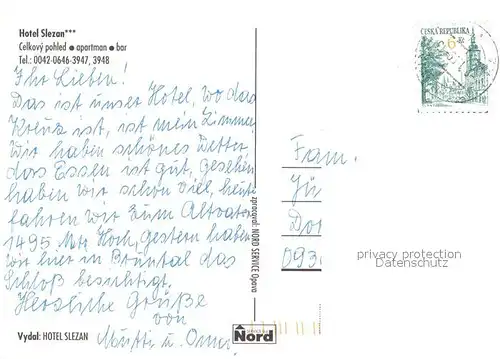 Hotel Slezan***
Celkový pohled ● apartman ● bar
Tel.: 0042-0646-3947, 3948
Ihr Lieben!
Das ist unser Hotel, wo das
Kreuz ist, ist mein Zimmer
Wir haben schönes Wetter
das Essen ist gut, Gesehen
haben wir schon viel, heute
fahren wir zum Altvater
1495 Mtr Hoch, Gestern haben
wir hier in Bruntal das
Schloß besichtigt.
Herzliche Grüße
von
Mutti u. Oma
Vydal: HOTEL SLEZAN
zpracoval: NORD SERVICE Opava
Nord
ČESKÁ REPUBLIKA
6 Kč
Fam.
Jü
Dor
093
privacy protection
Datenschutz